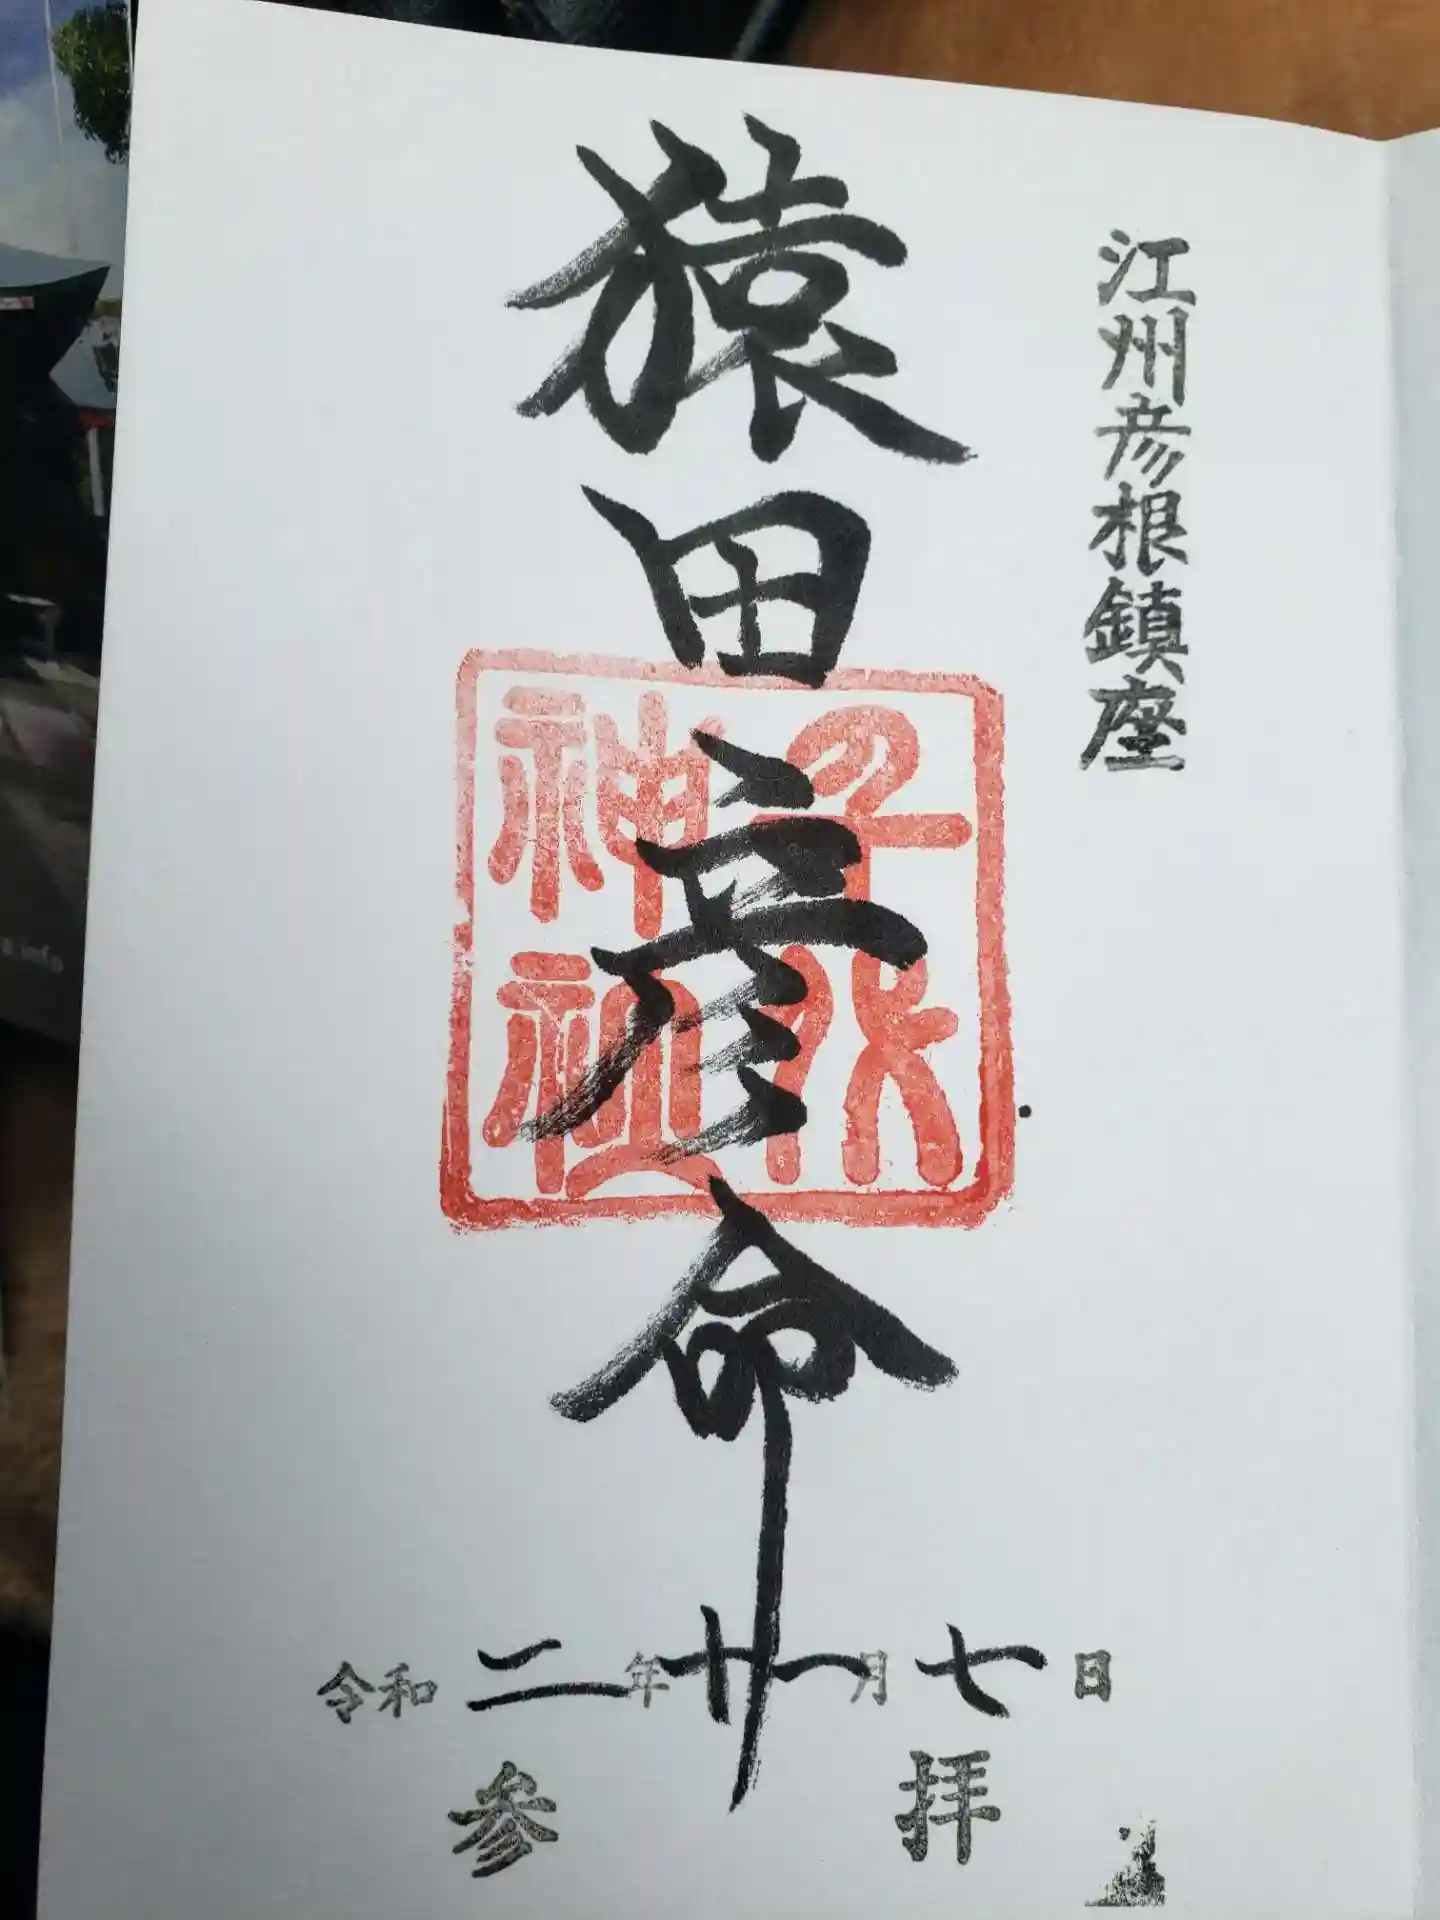 江州彦根鎮座
猿田彦命
千代
神社
令和二年十一月七日
参拝
info